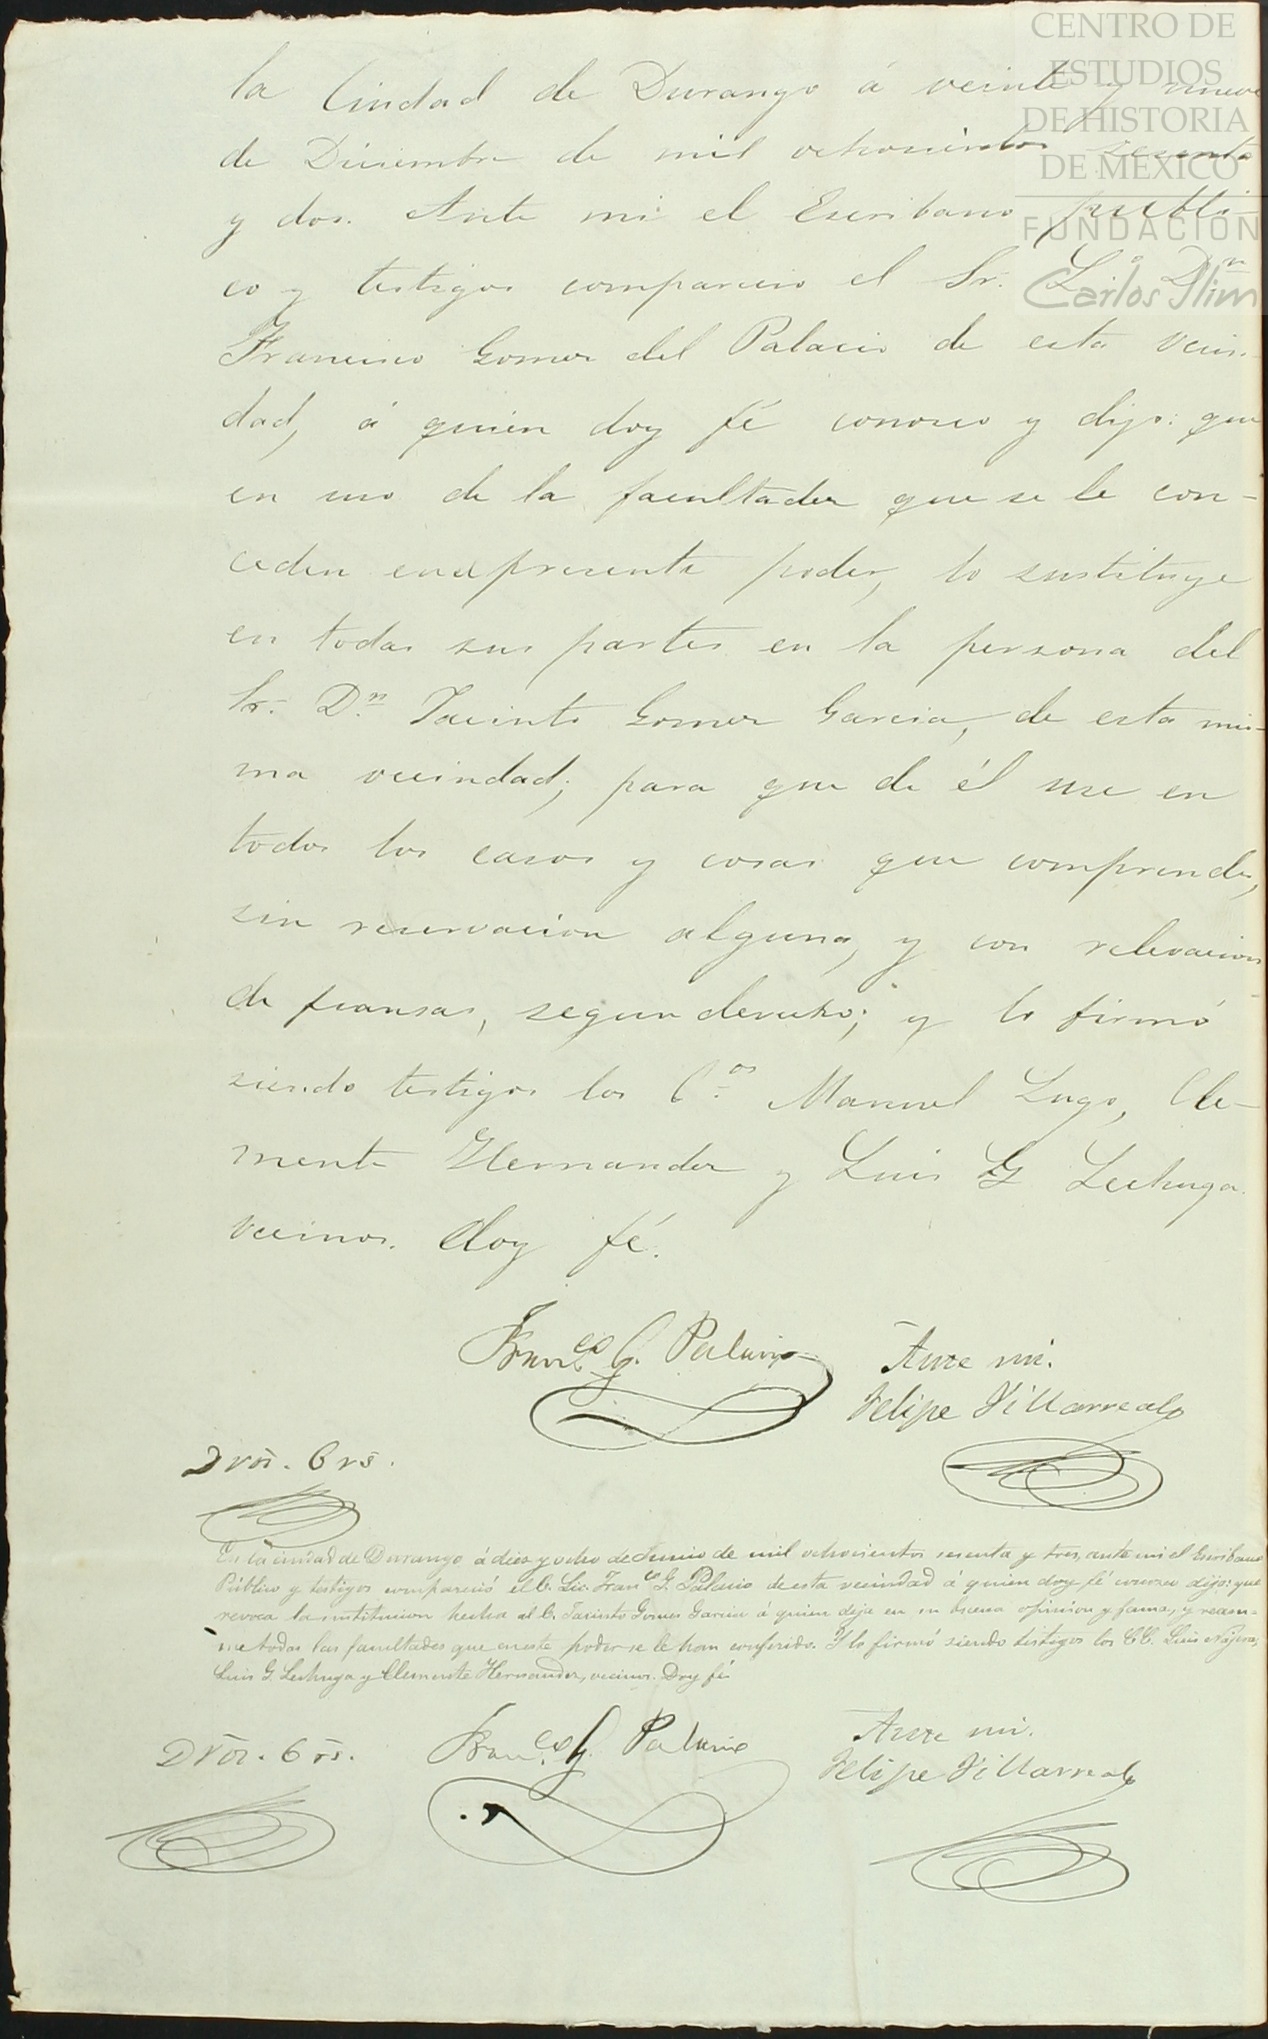 CENTRO DE
ESTUDIOS
DE HISTORIA
DE MÉXICO
FUNDACIÓN
Carlos Slim
la Ciudad de Durango á veinte y nueve
de Diciembre de mil ochocientos sesenta
y dos. Ante mi el Escribano públi-
co y testigos comparecio el Sr. Lic. Dn
Francisco Gomez del Palacio de esta vecin-
dad, á quien doy fé conozco y dijo: que
en uso de la facultades que se le con-
ceden en el presente poder, lo sustituye
en todas sus partes en la persona del
Sr. Dn. Jacinto Gomez Garcia, de esta mis-
ma vecindad; para que de él use en
todos los casos y cosas que comprende,
sin reservacion alguna, y con relevacion
de fiansas, segun derecho; y lo firmó
siendo testigos los C.os Manuel Lugo, Cle-
mente Hernandez y Luis G Lechuga
vecinos. doy fé.
Franco G. Palacio
Ante mi.
Felipe Villarreal
Dros. 6 rs.
En la ciudad de Durango á diez y ocho de Junio de mil ochocientos sesenta y tres, ante mi el Escribano
Público y testigos compareció el C. Lic. Franco G. Palacio de esta vecindad á quien doy fé conozco dijo: que
revoca la sustitucion hecha al C. Jacinto Gomez Garcia á quien deja en su buena opinion y fama, y reasu-
me todas las facultades que en este poder se le han conferido. Y lo firmó siendo testigos los CC. Luis Nájera,
Luis G. Lechuga y Clemente Hernandez, vecinos. Doy fé
Dros. 6 rs.
Franco G. Palacio
Ante mi.
Felipe Villarreal